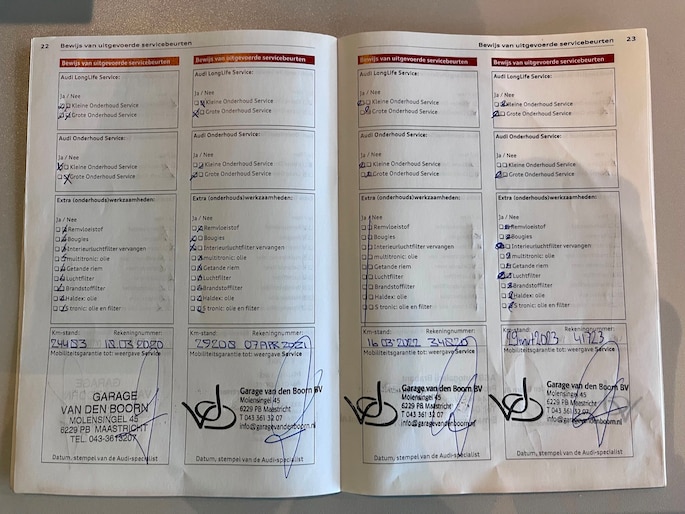 22 Bewijs van uitgevoerde servicebeurten
Bewijs van uitgevoerde servicebeurten
Audi LongLife Service:
Ja / Nee
Kleine Onderhoud Service
Grote Onderhoud Service
Audi Onderhoud Service:
Ja / Nee
Kleine Onderhoud Service
Grote Onderhoud Service
Extra (onderhouds)werkzaamheden:
Ja / Nee
Remvloeistof
Bougies
Interieurluchtfilter vervangen
multitronic: olie
Getande riem
Luchtfilter
Brandstoffilter
Haldex: olie
S tronic: olie en filter
Km-stand: Rekeningnummer:
24483 18.03 2020
Mobiliteitsgarantie tot: weergave Service
GARAGE
VAN DEN BOORN
MOLENSINGEL 45
6229 PB MAASTRICHT
TEL. 043-3613207
Datum, stempel van de Audi-specialist
Bewijs van uitgevoerde servicebeurten
Audi LongLife Service:
Ja / Nee
Kleine Onderhoud Service
Grote Onderhoud Service
Audi Onderhoud Service:
Ja / Nee
Kleine Onderhoud Service
Grote Onderhoud Service
Extra (onderhouds)werkzaamheden:
Ja / Nee
Remvloeistof
Bougies
Interieurluchtfilter vervangen
multitronic: olie
Getande riem
Luchtfilter
Brandstoffilter
Haldex: olie
S tronic: olie en filter
Km-stand: Rekeningnummer:
25208 07 APR 2021
Mobiliteitsgarantie tot: weergave Service
vdb
Garage van den Boorn BV
Molensingel 45
6229 PB Maastricht
T 043 361 32 07
info@garagevandenboorn.nl
Datum, stempel van de Audi-specialist
Bewijs van uitgevoerde servicebeurten 23
Bewijs van uitgevoerde servicebeurten
Audi LongLife Service:
Ja / Nee
Kleine Onderhoud Service
Grote Onderhoud Service
Audi Onderhoud Service:
Ja / Nee
Kleine Onderhoud Service
Grote Onderhoud Service
Extra (onderhouds)werkzaamheden:
Ja / Nee
Remvloeistof
Bougies
Interieurluchtfilter vervangen
multitronic: olie
Getande riem
Luchtfilter
Brandstoffilter
Haldex: olie
S tronic: olie en filter
Km-stand: Rekeningnummer:
16 03 2022 34820
Mobiliteitsgarantie tot: weergave Service
vdb
Garage van den Boorn BV
Molensingel 45
6229 PB Maastricht
T 043 361 32 07
info@garagevandenboorn.nl
Datum, stempel van de Audi-specialist
Bewijs van uitgevoerde servicebeurten
Audi LongLife Service:
Ja / Nee
Kleine Onderhoud Service
Grote Onderhoud Service
Audi Onderhoud Service:
Ja / Nee
Kleine Onderhoud Service
Grote Onderhoud Service
Extra (onderhouds)werkzaamheden:
Ja / Nee
Remvloeistof
Bougies
Interieurluchtfilter vervangen
multitronic: olie
Getande riem
Luchtfilter
Brandstoffilter
Haldex: olie
S tronic: olie en filter
Km-stand: Rekeningnummer:
2023 41723
Mobiliteitsgarantie tot: weergave Service
vdb
Garage van den Boorn BV
Molensingel 45
6229 PB Maastricht
T 043 361 32 07
info@garagevandenboorn.nl
Datum, stempel van de Audi-specialist